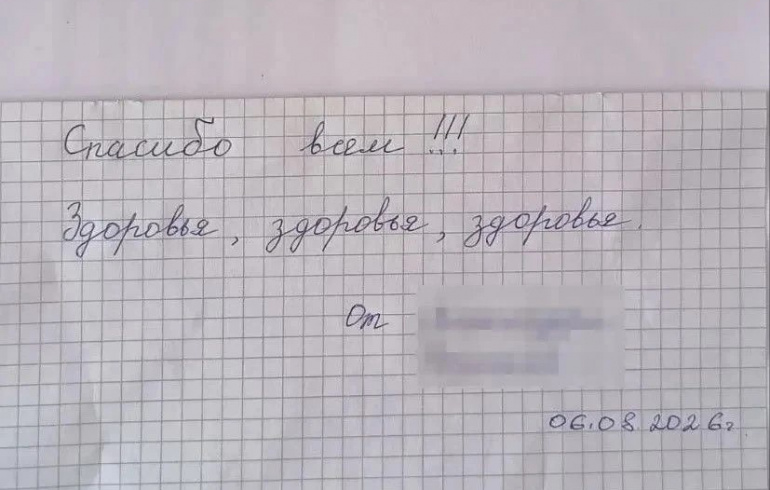 Спасибо всем !!!
Здоровья, здоровья, здоровья.
От
06.08.2026г